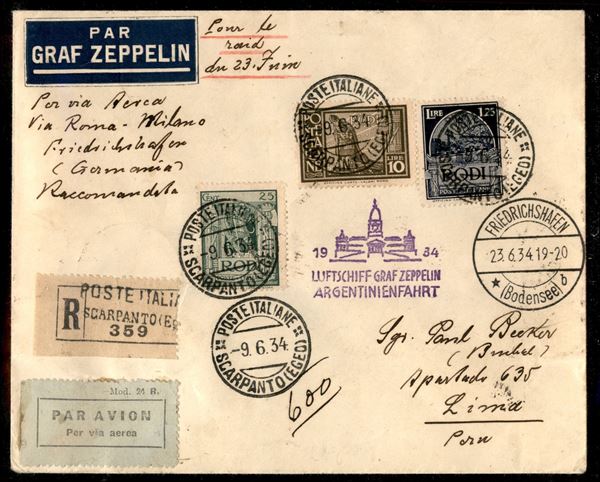 PAR
GRAF ZEPPELIN
Pour le
raid
du 23. Juin
Per via Aerea
Via Roma - Milano
Friedrichshafen
(Germania)
Raccomandata
POSTE ITALIANE
9.6.34
SCARPANTO (EGEO)
POSTE ITALIANE
LIRE 10
LIRE 1,25
RODI
CENT 25
RODI
POSTE ITALIANE
9.6.34
SCARPANTO (EGEO)
FRIEDRICHSHAFEN
23.6.34 19-20
* (Bodensee) b
19 34
LUFTSCHIFF GRAF ZEPPELIN
ARGENTINIENFAHRT
R
POSTE ITALIA
SCARPANTO (EG
359
POSTE ITALIANE
-9.6.34
SCARPANTO (EGEO)
Sgr. Paul Becker
Apartado 635
Lima
Peru
600
Mod. 24 R.
PAR AVION
Per via aerea